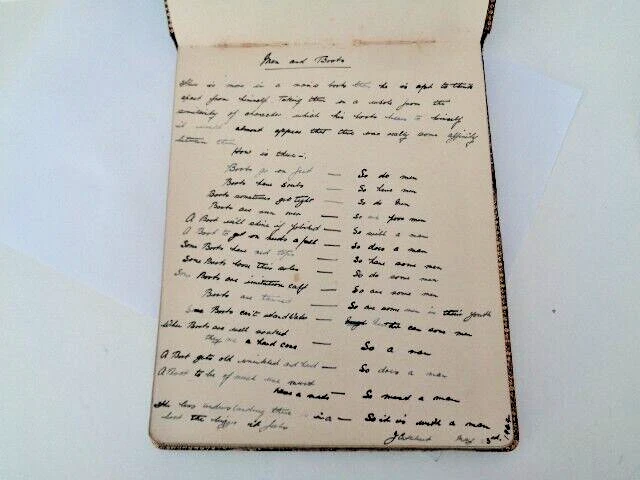 Men and Boots
There is more in a man's boots than he is apt to think
apart from himself. Taking them on a whole from the
similarity of character which his boots bears to himself
it would almost appear that there was really some affinity
between them
How is this:-
Boots go on feet — So do men
Boots have souls — So have men
Boots sometimes get tight — So do men
Boots are run over — So are poor men
A Boot will shine if polished — So will a man
A Boot to get on needs a push — So does a man
Some Boots have red tops — So have some men
Some Boots lose their soles — So do some men
Some Boots are imitation calf — So are some men
Boots are tanned — So are some men in their youth
Some Boots can't stand Water — can some men
When Boots are well soaked
they are a hard case — So a man
A Boot gets old wrinkled and hard — So does a man
A Boot to be of much use must
have a mate — So must a man
The less understanding there is in a — So it is with a man
boot the bigger it feels
May 3rd.